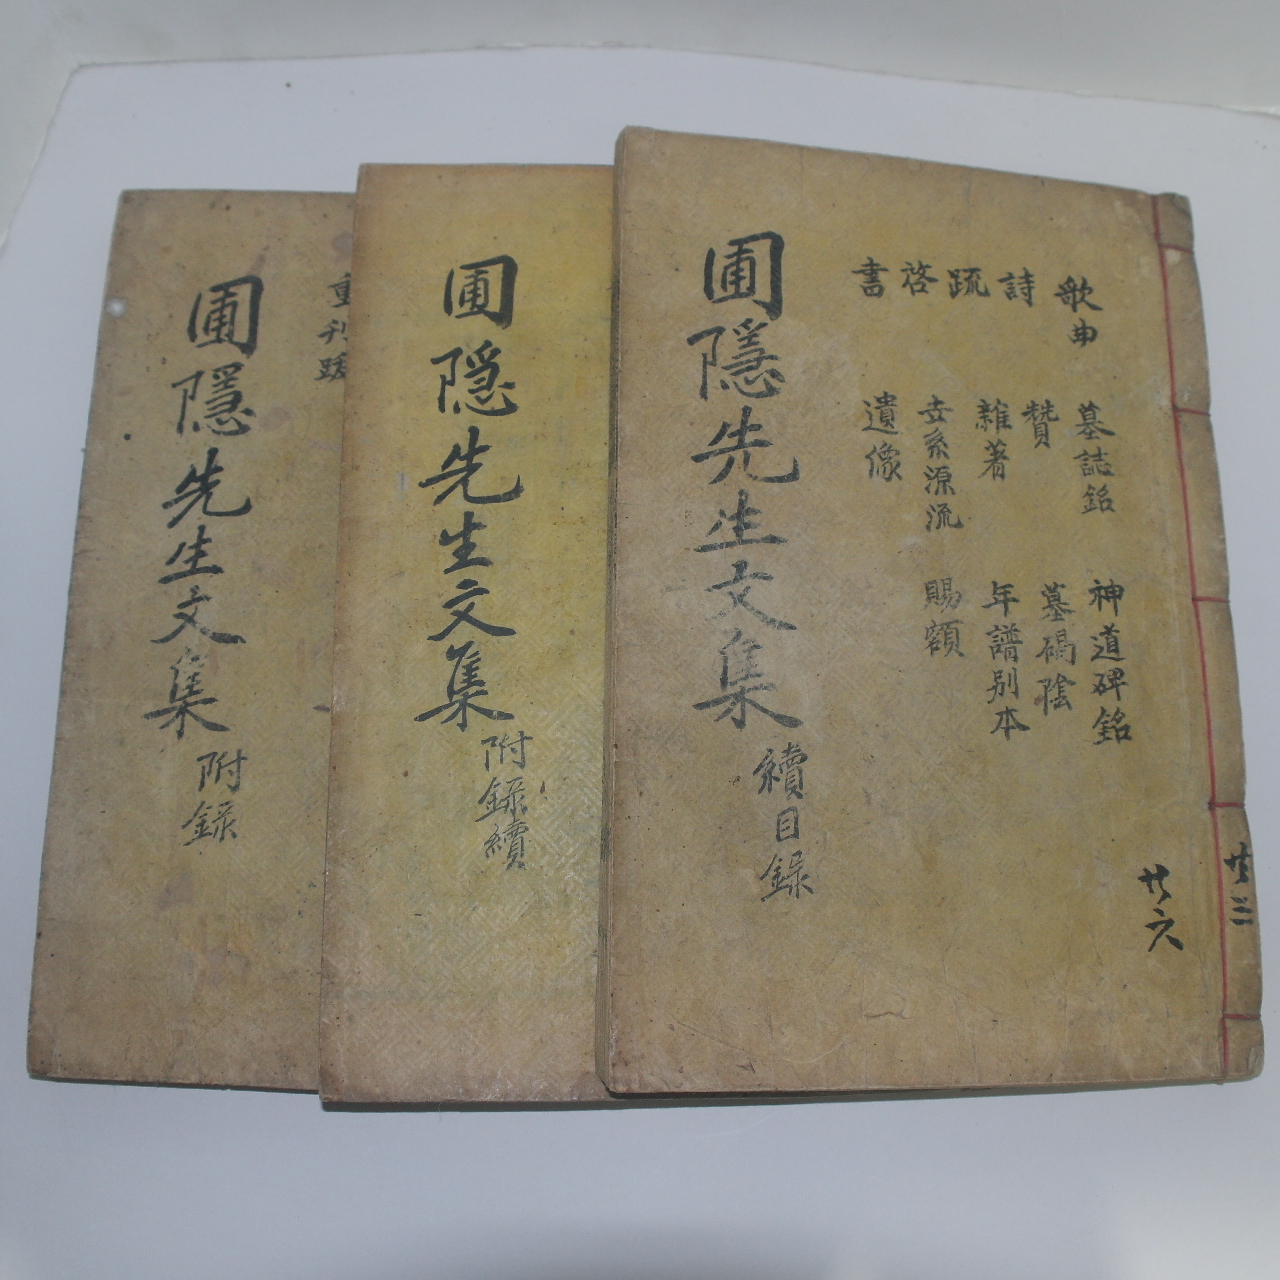 歌曲
墓誌銘
神道碑銘
詩
贊
墓碣陰
疏
雜著
年譜別本
啓
世系源流
賜額
書
遺像
圃隱先生文集
續目錄
廿六
廿三
圃隱先生文集
附錄續
重刊跋
圃隱先生文集
附錄